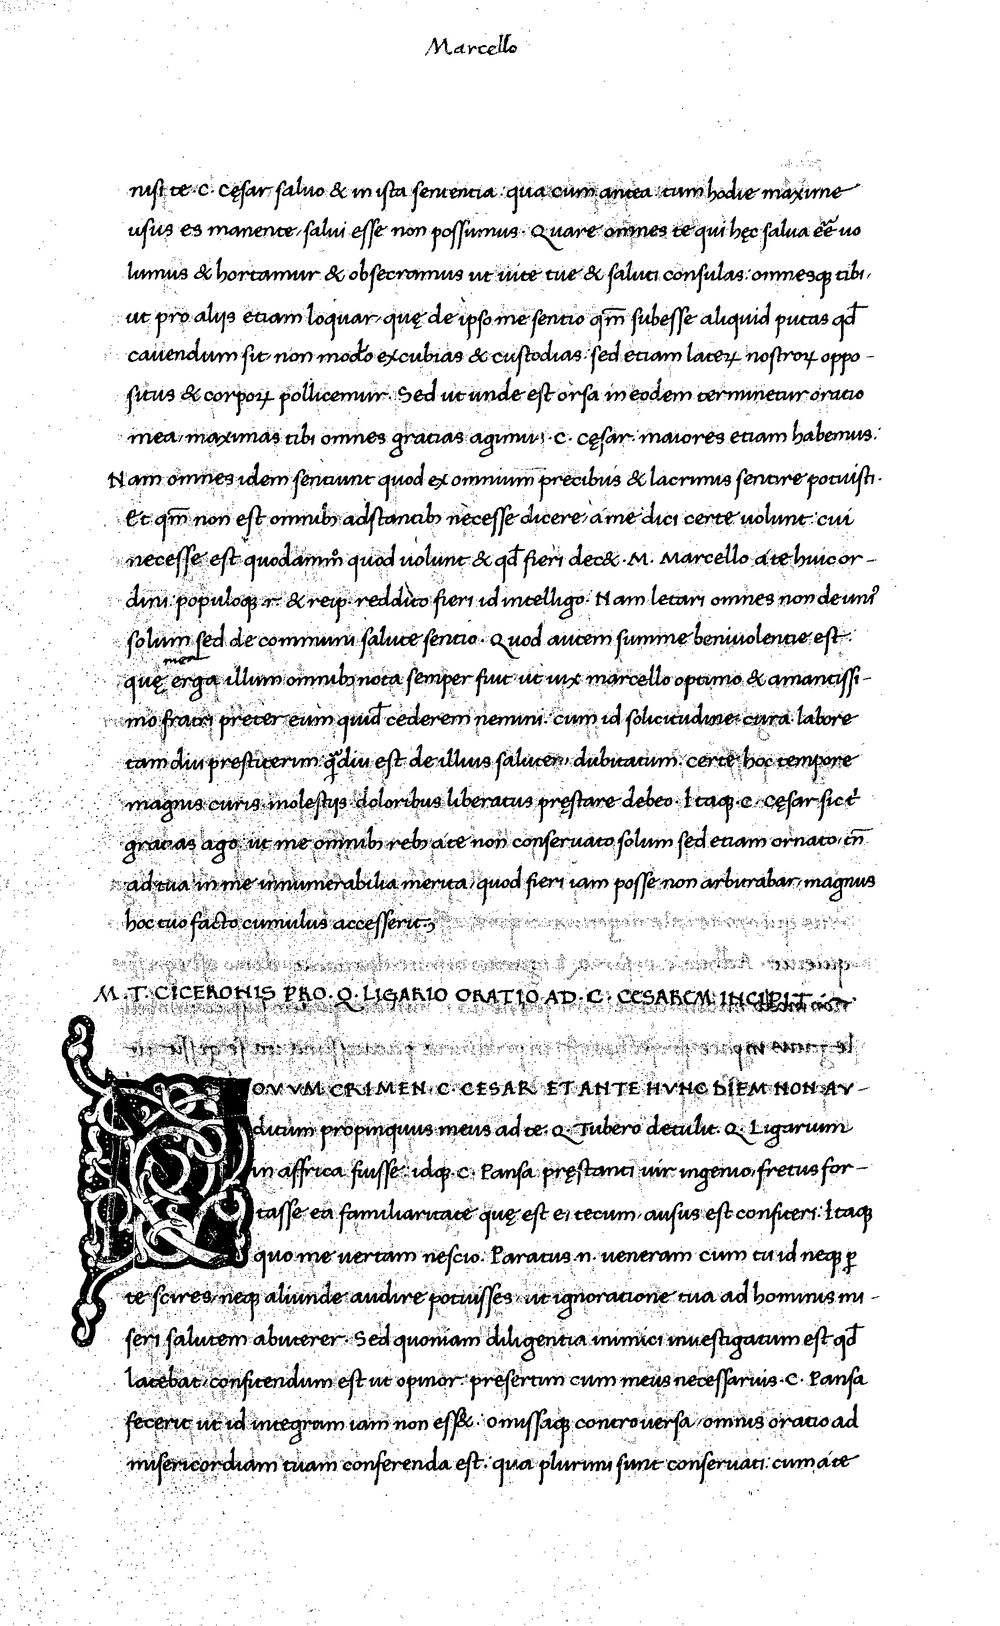 Marcello
nisi te · C · Cęsar saluo & in ista sententia qua cum antea tum hodie maxime
usus es manente, salui esse non possumus. Quare omnes te qui hęc salua eē̄ uo
lumus & hortamur & obsecramus ut uite tue & saluti consulas: omnesqꝫ tibi,
ut pro alijs etiam loquar, quę de ipso me sentio qm̄ subesse aliquid putas qd̄
cauendum sit non modo excubias & custodias sed etiam lateꝝ nostroꝝ oppo-
situs & corpoꝝ pollicemur. Sed ut unde est orsa in eodem terminetur oratio
mea, maximas tibi omnes gratias agimus · C · Cęsar. maiores etiam habemus.
Nam omnes idem sentiunt quod ex omnium precibus & lacrimis sentire potuisti.
Et qm̄ non est omnibꝫ adstantibꝫ necesse dicere, a me dici certe uolunt: cui
necesse est quodammo quod uolunt & qd̄ fieri dec&. M. Marcello a te huic or-
dini populoqꝫ r. & reip. reddito fieri id intelligo. Nam letari omnes non de uniꝰ
solum sed de communi salute sentio. Quod autem summe beniuolentie est.
mea
quę erga illum omnibꝫ nota semper fuit ut uix marcello optimo & amantissi-
mo fratri preter eum quid̄ cederem nemini. cum id solicitudine cura labore
tam diu prestiterim qᷓdiu est de illius salute dubitatum. certe hoc tempore
magnis curis molestijs doloribus liberatus pręstare debeo. Itaqꝫ · C · Cęsar sic t̄
gratias ago, ut me omnibꝫ rebꝫ a te non conseruato solum sed etiam ornato, tn̄
ad tua in me innumerabilia merita, quod fieri iam posse non arbitrabar, magnus
hoc tuo facto cumulus accesserit;
M. T. CICERONIS PRO · Q · LIGARIO ORATIO AD · C · CESAREM INCIPIT
NOVVM CRIMEN · C · CESAR ET ANTE HVNC DIEM NON AV-
ditum propinquus meus ad te · Q · Tubero detulit. Q. Ligarium
in affrica fuisse idqꝫ C. Pansa pręstanti uir ingenio, fretus for-
tasse ea familiaritate quę est ei tecum, ausus est confiteri. Itaqꝫ
quo me uertam nescio. Paratus .n. ueneram cum tu id neqꝫ ꝑ
te scires, neqꝫ aliunde audire potuisses, ut ignoratione tua ad hominis mi-
seri salutem abuterer. Sed quoniam diligentia inimici inuestigatum est qd̄
latebat, confitendum est ut opinor. presertim cum meus necessarius · C · Pansa
fecerit ut id integram iam non ess&. omissaqꝫ controuersia omnis oratio ad
misericordiam tuam conferenda est. qua plurimi sunt conseruati: cum a te